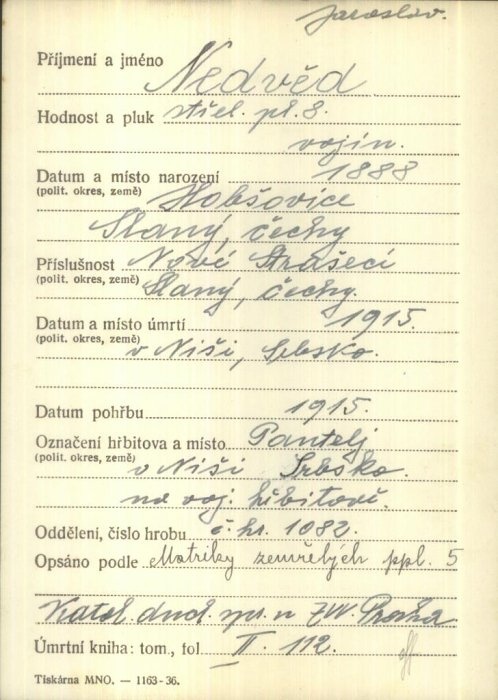 Jaroslav.
Příjmení a jméno Nedvěd
Hodnost a pluk střel. pl. 8.
vojín.
Datum a místo narození 1888
(polit. okres, země) Hobšovice
Slaný, čechy
Příslušnost Nové Strašecí
(polit. okres, země) Slaný, čechy.
Datum a místo úmrtí 1915.
(polit. okres, země) v Niši, Srbsko.
Datum pohřbu 1915.
Označení hřbitova a místo Pantelj
(polit. okres, země) v Niši Srbsko.
na voj. hřbitově.
Oddělení, číslo hrobu č. hr. 1082.
Opsáno podle Matriky zemřelých ppl. 5
Katol. duch. spr. u ZVV. Praha
Úmrtní kniha: tom., fol II. 112.
Tiskárna MNO. — 1163-36.